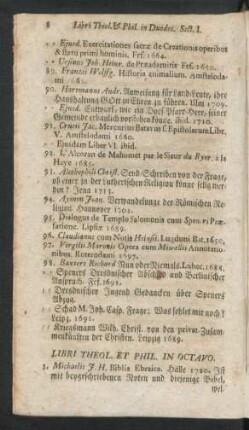 8 Libri Theol. & Phil. in Duodec. Sect. I.
- - Ejusd. Exercitationes sacræ de Creationis operibus
& statu primi hominis. Frf. 1664.
- - Ursinus Joh. Henr. de Præadamitis Frf.
89. Frantzii Wolffg. Historia animalium. Amstelodami
90. Hartmanns Andr. Anweisung für Land-Leute, ihre
Haushaltung Gott zu Ehren zu führen. Ulm 1709.
- - Ejusd. Entwurf, wie ein Dorf-Pfarr-Herr, seiner
Gemeinde erbaulich vorstehen könne. ibid. 1710.
91. Crucii Jac. Mercurius Batavus s. Epistolarum Libr.
V. Amstelodami
- - Ejusdem Liber VI. ibid.
92. L'Alcoran de Mahomet par le Sieur du Ryer. à la
Haye 1685.
93. Alethophili Christ. Send-Schreiben von der Frage,
ob einer in der Lutherischen Religion könne selig werden?
Jena 1715.
94. Verwandelunge der Römischen Religion.
Hannover 1701.
95. Dialogus de Templo Salomonis cum Spon. vi Præfatione.
Lipsiæ 1689.
96. Claudianus cum Notis Heinsii. Lugduni Bat. 1650.
97. Virgilii Maronis Opera cum Minellii Annotationibus.
Roterodami 1697.
98. Baxters Richard Nun oder Niemals. Lubec. 1688.
- - Speners Dreßdnischer Abschied und Berlinischer
Ansprach. Frf. 1691.
- - Dreßdnischer Jugend Gedancken über Speners
Abzug.
- - Schad M. Joh. Casp. Frage: Was fehlet mir noch?
Leipz. 1691.
- - Kriegßmann Wilh. Christ. von den privat-Zusammenkunften
der Christen. Leipzig 1689.
LIBRI THEOL. ET PHIL. IN OCTAVO.
Michaelis J. H. Biblia Ebraica. Halle 1720. Ist
mit beygeschriebenen Noten und diejenige Bibel,
wel